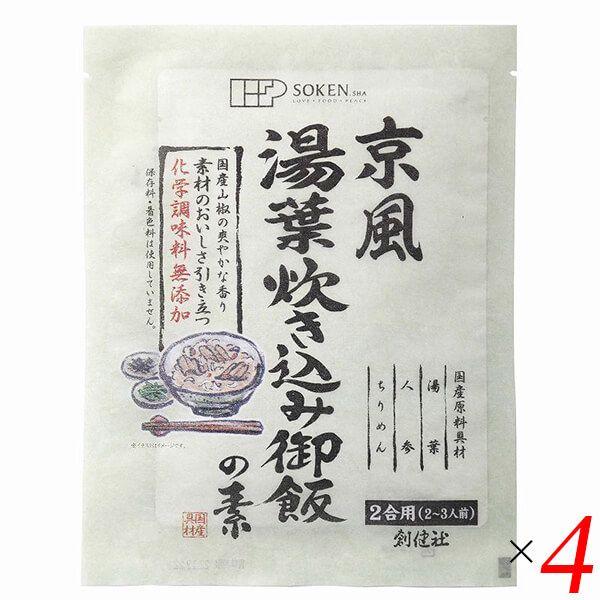 SOKEN.SHA
LOVE・FOOD・PEACE
京風
湯葉炊き込み御飯
の素
国産山椒の爽やかな香り
素材のおいしさ引き立つ
化学調味料無添加
保存料・着色料は使用していません。
※イラストはイメージです。
国産原料具材
湯葉
人参
ちりめん
2合用(2~3人前)
創健社
国産
具材
×4